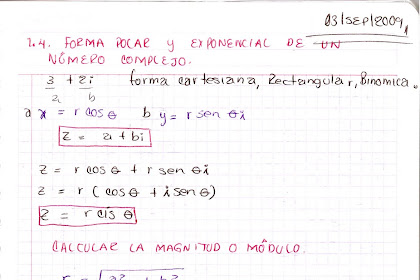 03/SEP/2009
1.4. FORMA POLAR y EXPONENCIAL DE UN
NÚMERO COMPLEJO.
3 + 2i forma cartesiana, Rectangular, Binomica.
a b
a x = r cos θ b y = r sen θi
z = a + bi
z = r cos θ + r sen θi
z = r (cos θ + i sen θ)
z = r cis θ
CALCULAR LA MAGNITUD O MÓDULO.
r = √a² + b²